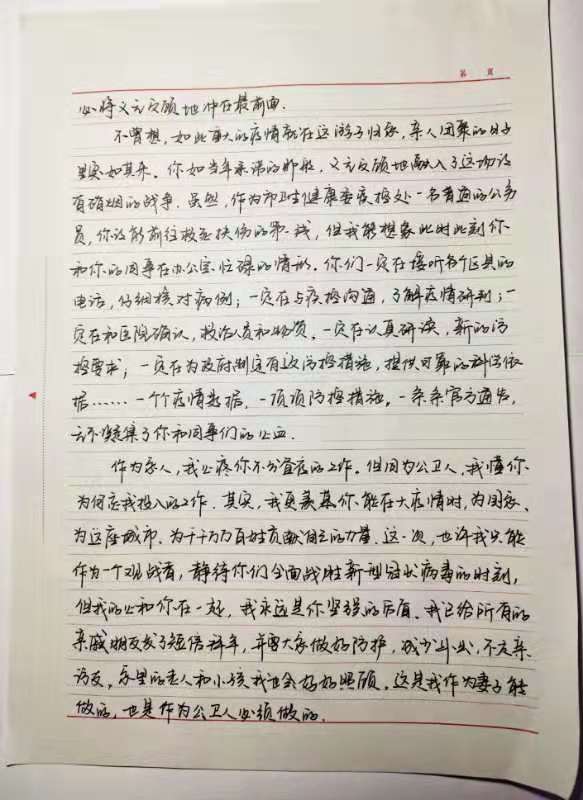 第 页
必将义无反顾地冲在最前面.
不曾想,如此重大的疫情就在这游子归家,亲人团聚的日子
里突如其来。你如当年承诺的那般,义无反顾地融入了这场没
有硝烟的战争.虽然,作为市卫生健康委疫控处一名普通的公务
员,你没能前往救死扶伤的第一线,但我能想象此时此刻你
和你的同事在办公室忙碌的情形.你们一定在接听各个区县的
电话,仔细核对病例;一定在与疾控沟通,了解疫情研判;一
定在和医院确认,救治人员和物资.一定在认真研读,新的防
控要求;一定在为政府制定有效防控措施,提供可靠的科学依
据……一个个疫情数据,一项项防控措施,一条条官方通告,
无不凝集了你和同事们的心血.
作为家人,我心疼你不分昼夜的工作.但同为公卫人,我懂你
为何忘我投入的工作.其实,我更羡慕你能在大疫情时,为国家、
为这座城市、为千千万万百姓贡献自己的力量.这一次,也许我只能
作为一个观战者,静待你们全面战胜新型冠状病毒的时刻,
但我的心和你在一起,我永远是你坚强的后盾.我已给所有的
亲戚朋友发了短信拜年,并要大家做好防护,减少外出,不走亲
访友,家里的老人和小孩我也会好好照顾.这是我作为妻子能
做的,也是作为公卫人必须做的.